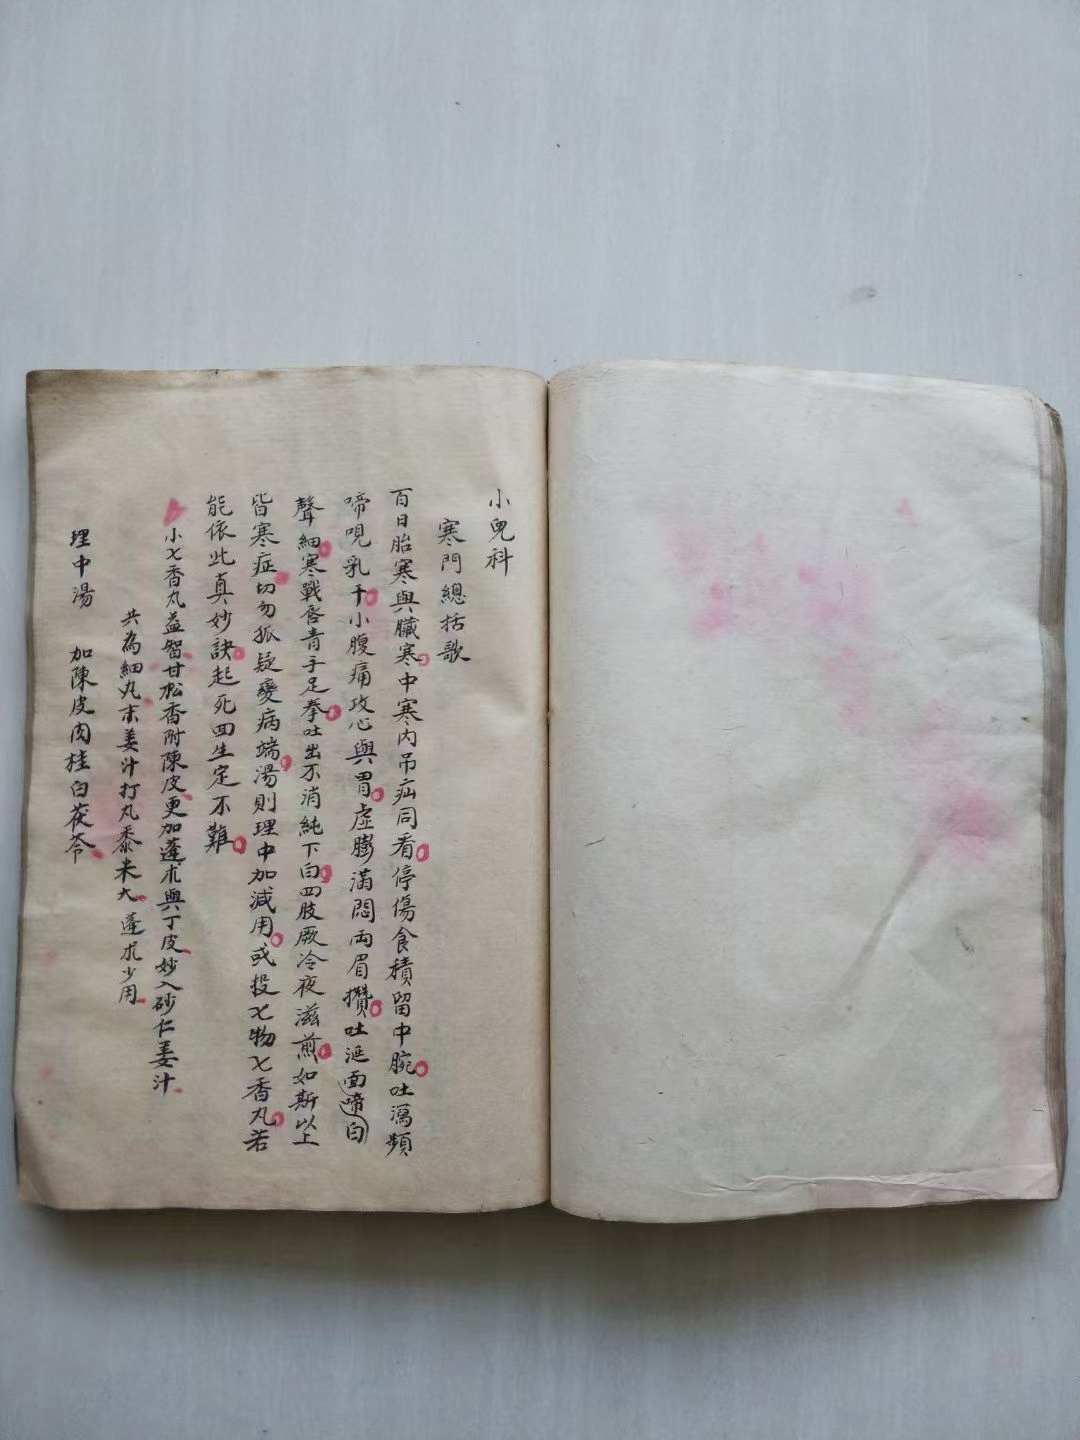 小兒科
寒門總括歌
百日胎寒與臟寒中寒內吊疝同看停傷食積留中腕吐瀉頻
啼哯乳干小腹痛攻心與胃虛膨滿悶両眉攢吐涎面啼白
聲細寒戰唇青手足拳吐出不消純下白四肢厥冷夜滋煎如斯以上
皆寒症切勿狐疑變病端湯則理中加減用或投七物七香丸若
能依此真妙訣起死回生定不難
小七香丸益智甘松香附陳皮更加蓬朮與丁皮妙入砂仁姜汁
共為細丸末姜汁打丸黍米大蓬朮少用
理中湯 加陳皮肉桂白茯苓